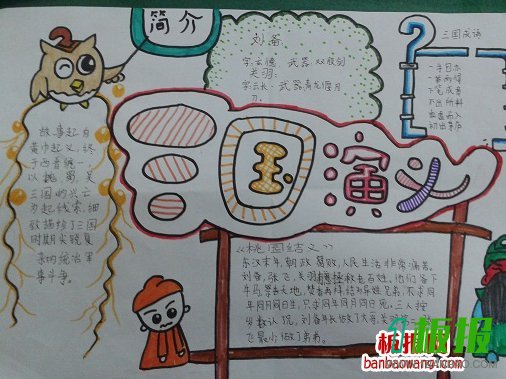 简介
故事起自
黄巾起义,终
于西晋统一,
以魏、蜀、吴
三国的兴亡
为起线索,细
致描绘了三国
时期尖锐复
杂的统治军
事斗争。
刘备
字:玄德 武器:双股剑
关羽:
字:云长 武器:青龙偃月
刀
三国成语
一身是胆
下笔成章
不出所料
出言不入
初出茅庐
三国演义
《桃园结义》
东汉末年,朝政腐败,人民生活非常痛苦。
刘备、张飞、关羽想拯救老百姓,他们备下
年同月同日生,只求同年同月同日死。三人按
岁数认兄,刘备年长做了大哥,关羽
飞最小做了弟弟。
板报
banbaowang.com